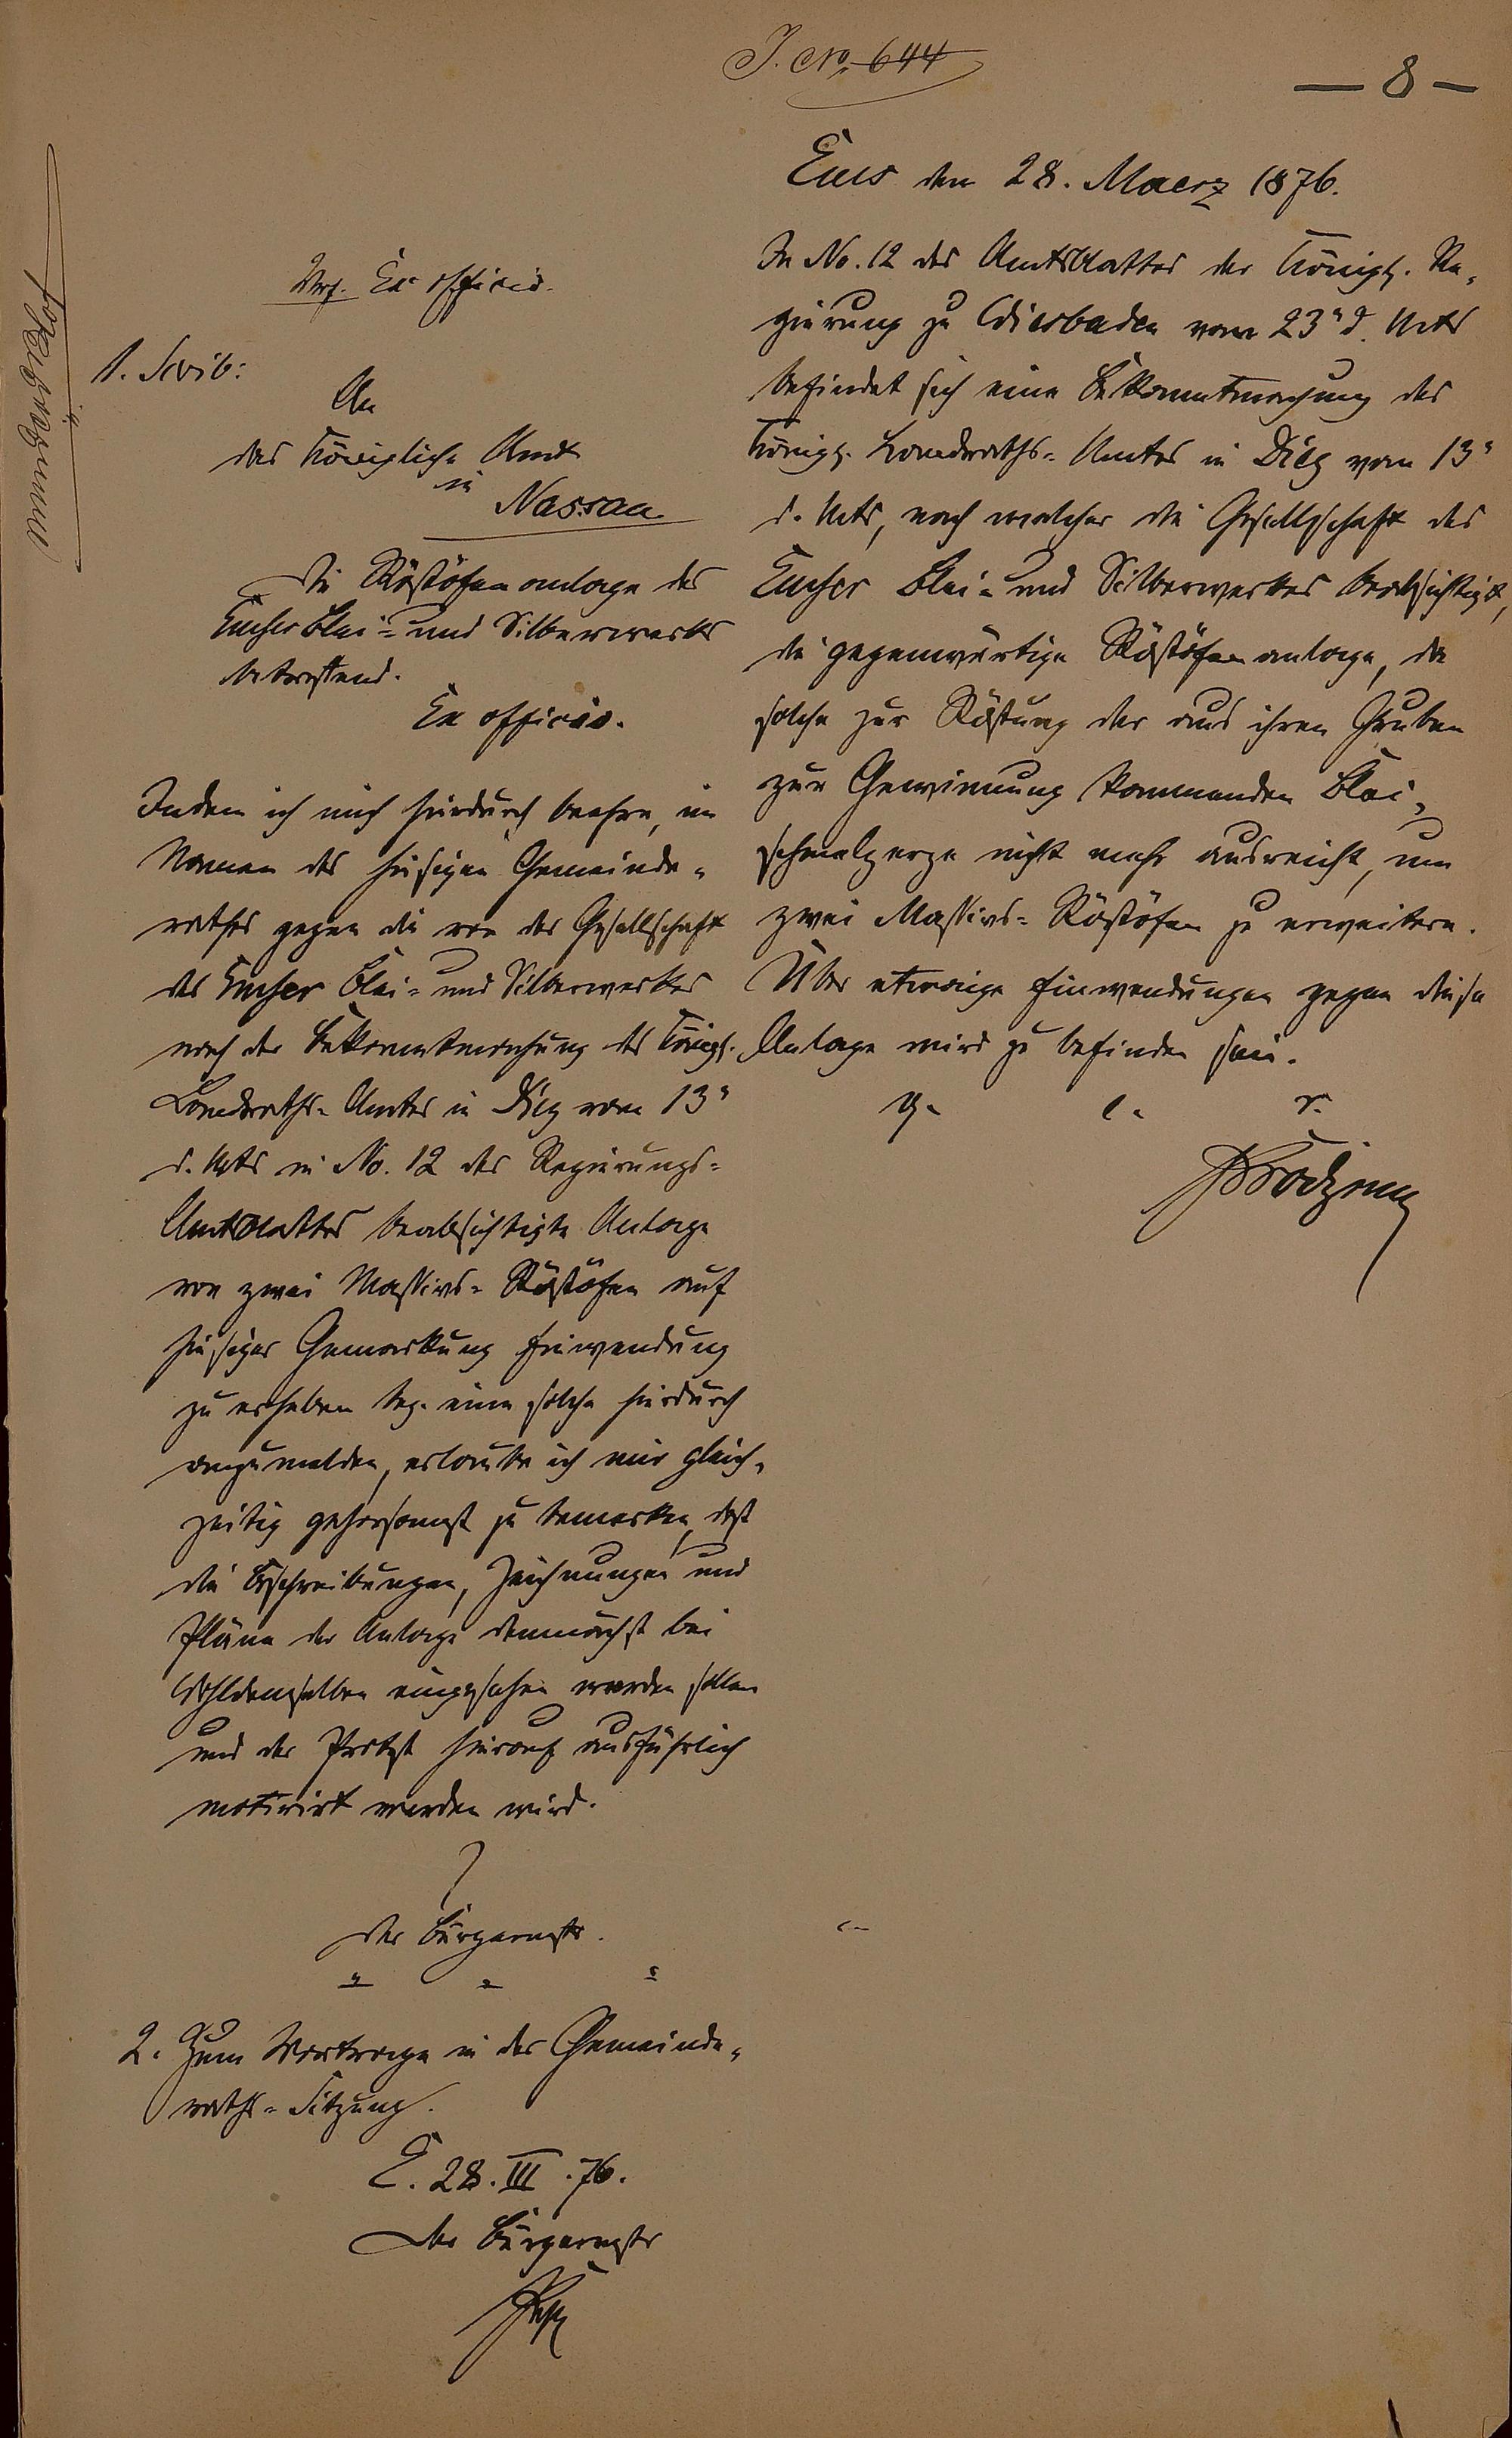 J. No. 644
— 8 —
Ems den 28. Maerz 1876.
In No. 12 des Amtsblattes der Königl. Re-
gierung zu Wiesbaden vom 23" d. Mts
befindet sich eine Bekanntmachung des
Königl. Landraths-Amtes in Diez vom 13"
d. Mts, nach welcher die Gesellschaft des
Emser Blei- und Silberwerkes beabsichtigt,
die gegenwärtige Röstöfenanlage, da
solche zur Röstung der aus ihren Gruben
zur Gewinnung kommenden Blei-
schmelzerze nicht mehr ausreicht, um
zwei Massivs-Röstöfen zu erweitern.
Über etwaige Einwendungen gegen diese
Anlage wird zu befinden sein.
Vrf. Ex officio.
1. Scrib:
An
das Königliche Amt
in
Nassau
Die Röstöfenanlage des
Emser Blei- und Silberwerks
betreffend.
Ex officio.
Indem ich mich hierdurch beehre, im
Namen des hiesigen Gemeinde-
rathes gegen die von der Gesellschaft
des Emser Blei- und Silberwerkes
nach der Bekanntmachung des Königl.
Landraths-Amtes in Diez vom 13"
d. Mts in No. 12 des Regierungs-
Amtsblattes beabsichtigte Anlage
von zwei Massivs-Röstöfen auf
hiesiger Gemarkung Einwendung
zu erheben bez. eine solche hierdurch
anzumelden, erlaube ich mir gleich-
zeitig gehorsamst zu bemerken, daß
die Beschreibungen, Zeichnungen und
Pläne der Anlage demnächst bei
Wohldemselben eingesehen werden sollen
und der Protest hierauf ausführlich
motivirt werden wird.
Der Bürgermstr.
2. Zum Vortrage in der Gemeinde-
raths-Sitzung.
E. 28. III. 76.
Der Bürgermstr